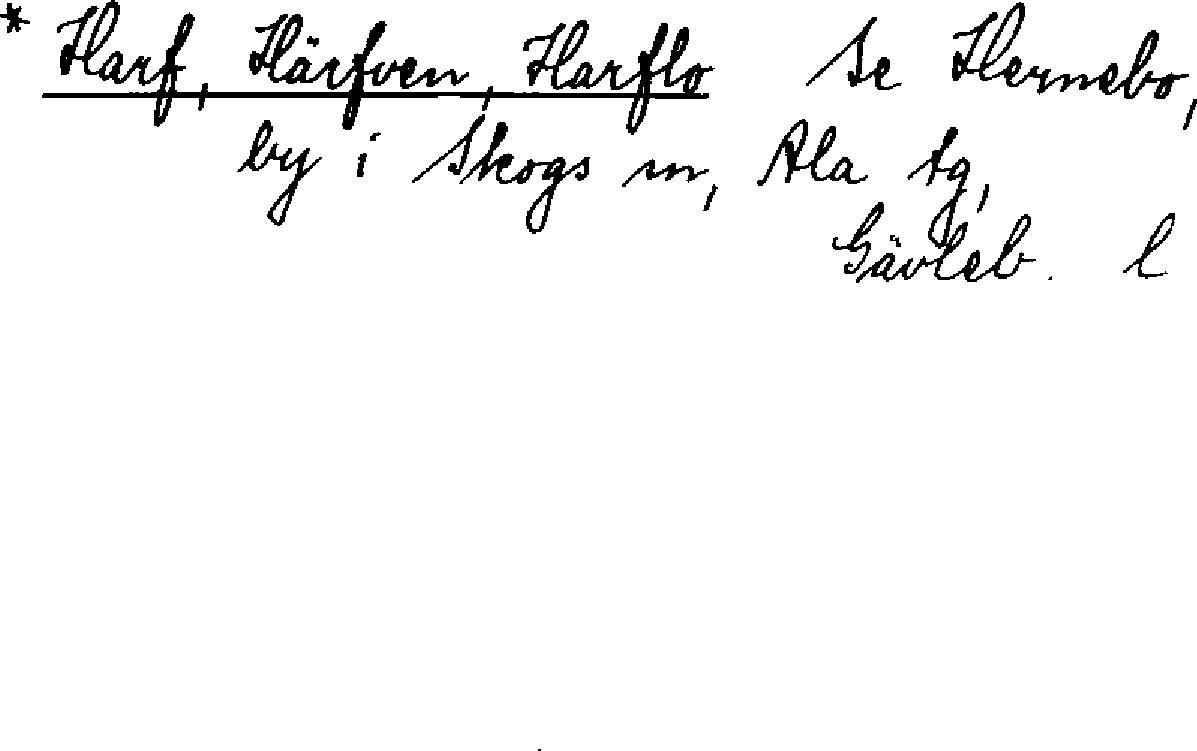 * Harf, Härfven, Harflo Se Hernebo,
by i Skogs sn, Ala tg,
Gävleb. l